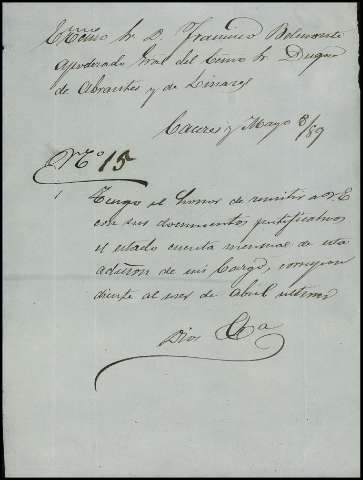 Excmo Sr. D. Francisco Belmonte
Apoderado Gral del Excmo Sr. Duque
de Abrantes y de Linares
Caceres y Mayo 8/89
No 15
Tengo el honor de remitir a V.E
con sus documentos justificativos
el estado cuenta mensual de esta
admon de mi Cargo, correspon
diente al mes de Abril ultimo
Dios &a